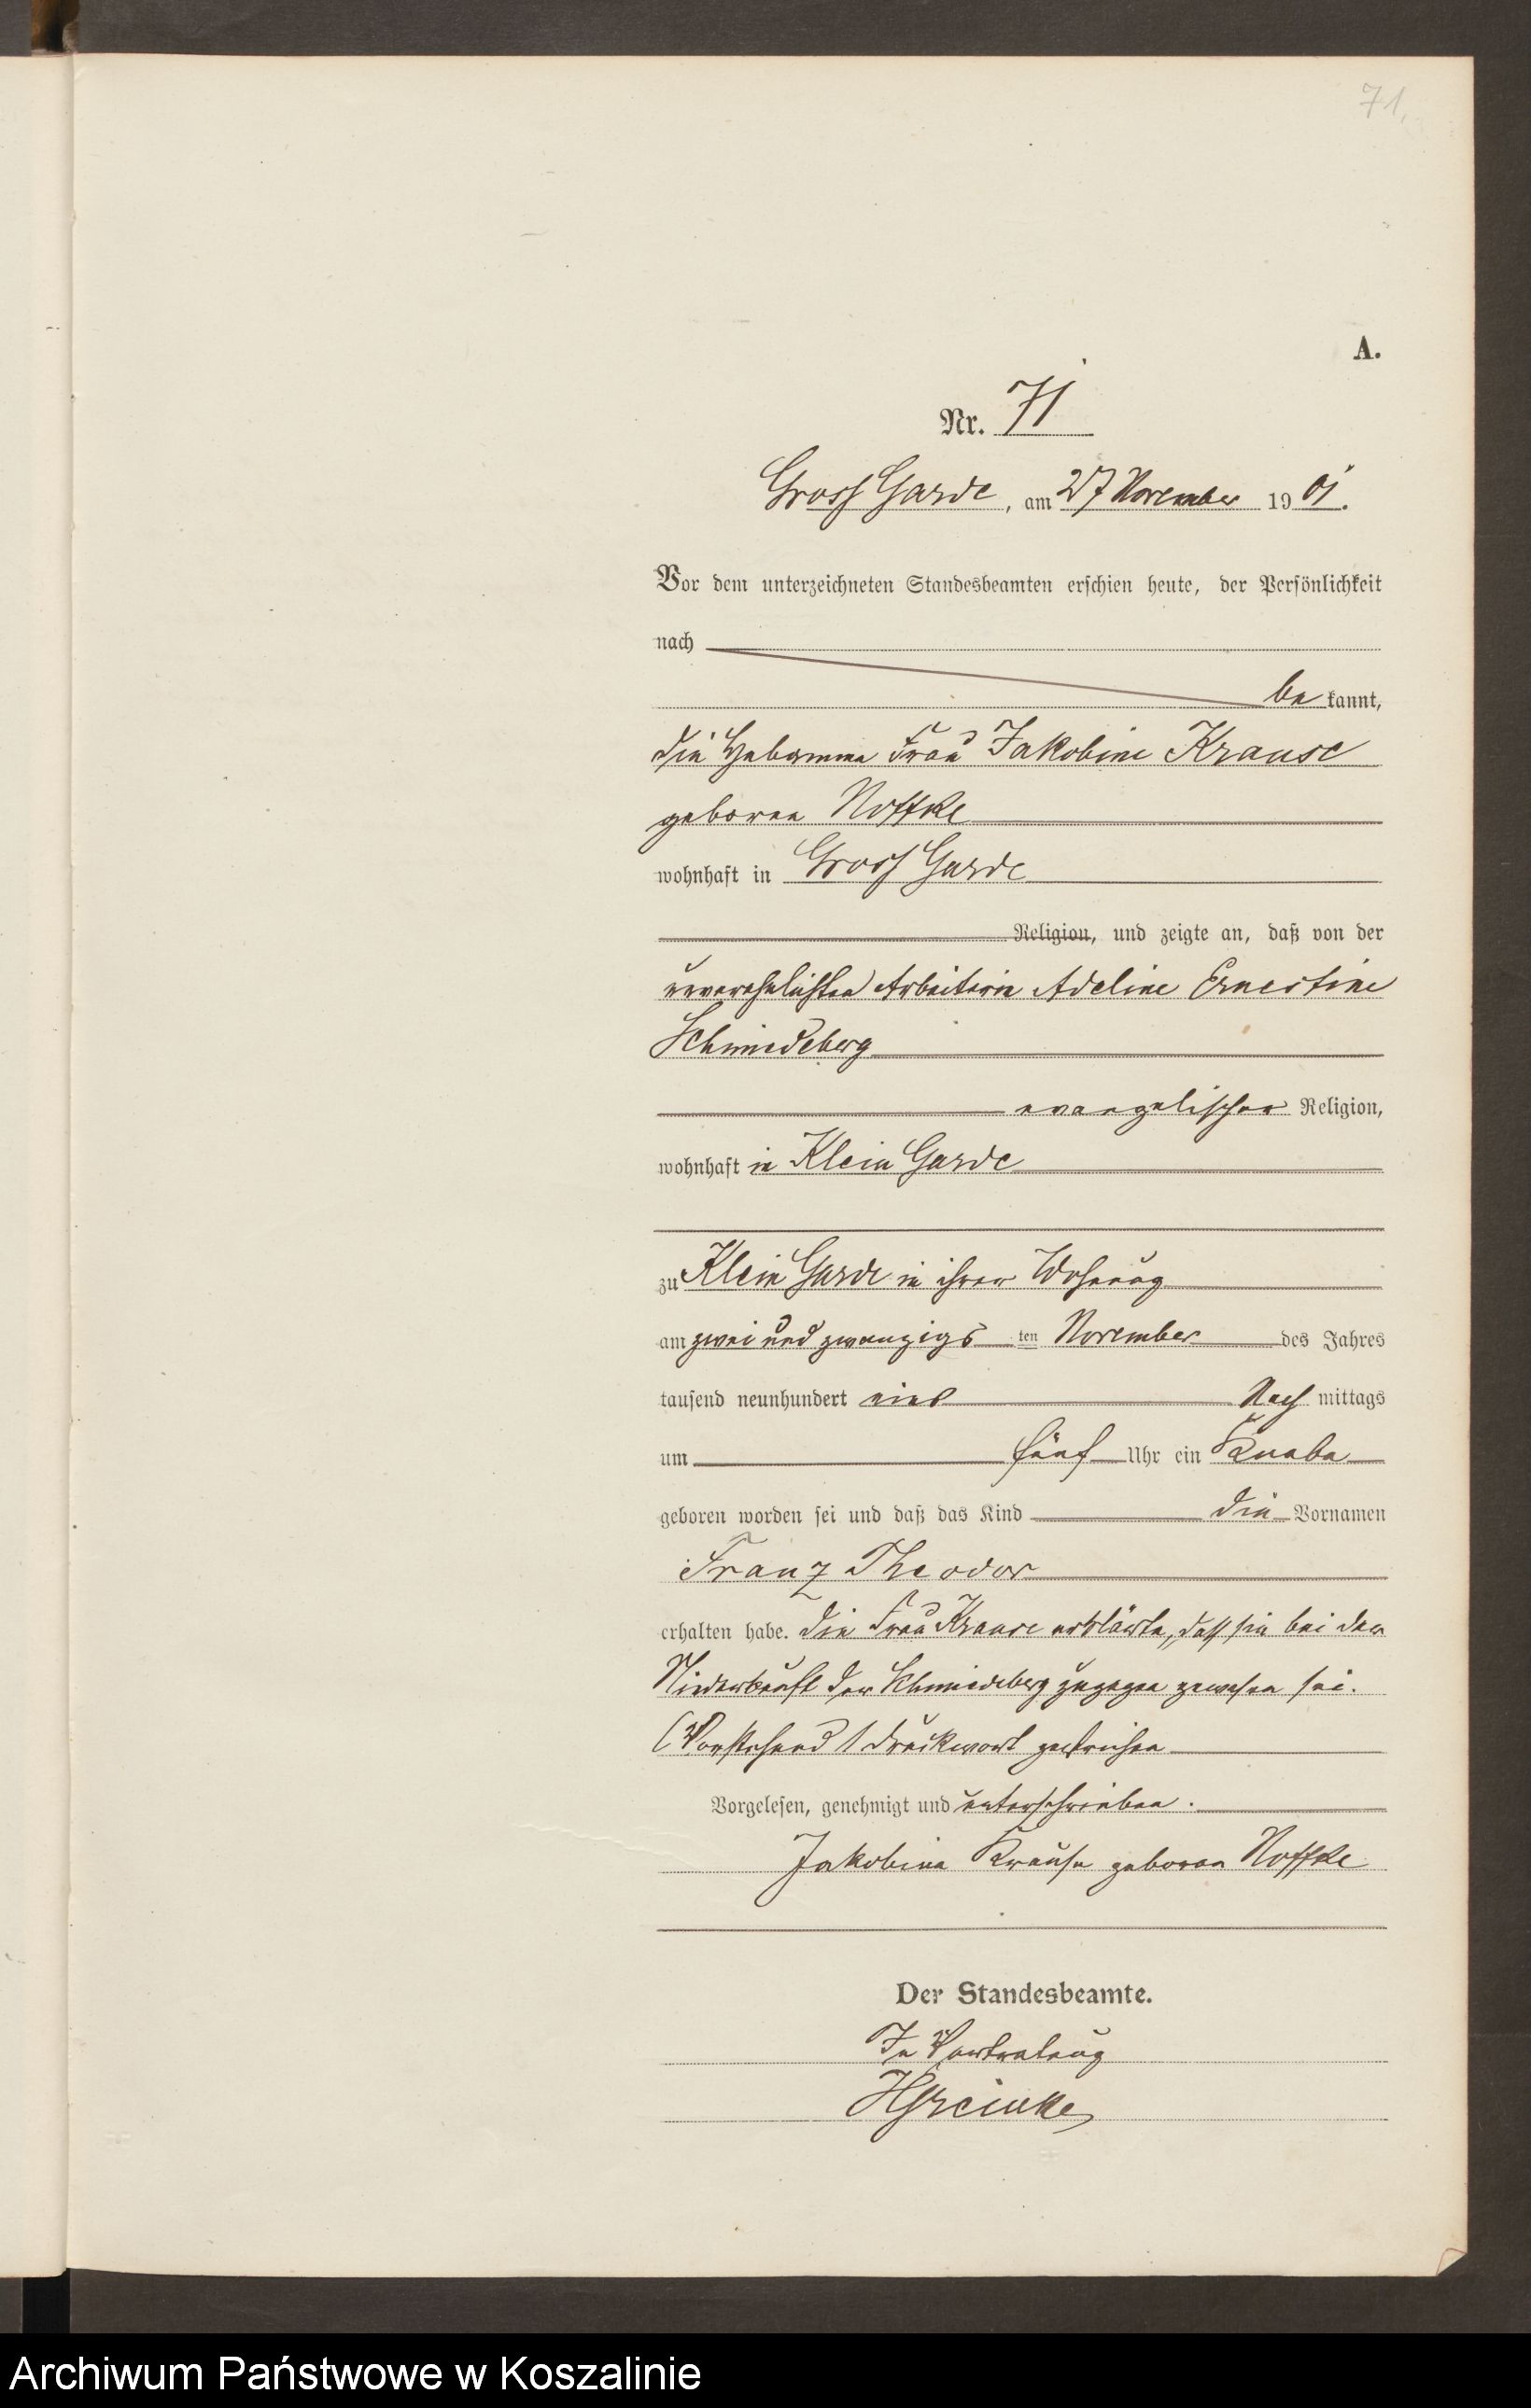 71.
A.
Nr. 71
Gross Garde, am 27 November 1901.
Vor dem unterzeichneten Standesbeamten erschien heute, der Persönlichkeit
nach
be kannt,
die Hebamme Frau Jakobine Krause
geboren Noffke
wohnhaft in Gross Garde
Religion, und zeigte an, daß von der
unverehelichten Arbeiterin Adeline Ernestine
Schmiedeberg
evangelischer Religion,
wohnhaft in Klein Garde
zu Klein Garde in ihrer Wohnung
am zwei und zwanzigsten November des Jahres
tausend neunhundert eins Nach mittags
um fünf Uhr ein Knabe
geboren worden sei und daß das Kind die Vornamen
Franz Theodor
erhalten habe. Die Frau Krause erklärte, daß sie bei der
Niederkunft der Schmiedeberg zugegen gewesen sei.
(Vorstehend 1 Druckwort gestrichen
Vorgelesen, genehmigt und unterschrieben.
Jakobine Krause geboren Noffke
Der Standesbeamte.
In Vertretung
Archiwum Państwowe w Koszalinie